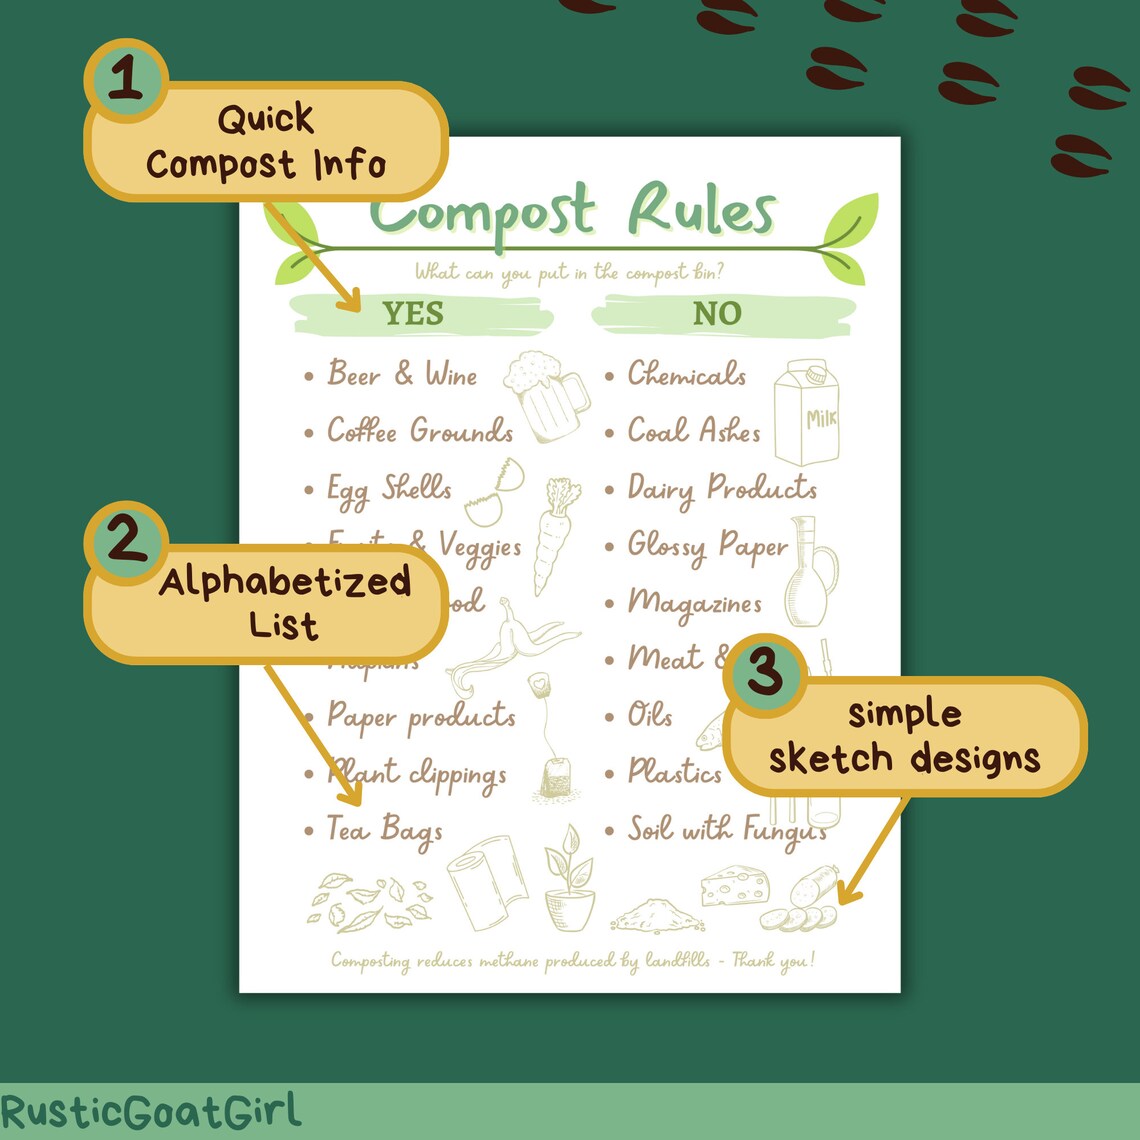 1
Quick
Compost Info
Compost Rules
What can you put in the compost bin?
YES
• Beer & Wine
• Coffee Grounds
• Egg Shells
& Veggies
• Paper products
• Plant clippings
• Tea Bags
NO
• Chemicals
• Coal Ashes
• Dairy Products
• Glossy Paper
• Magazines
• Meat &
• Oils
• Plastics
• Soil with Fungus
Milk
2
Alphabetized
List
3
simple
sketch designs
Composting reduces methane produced by landfills - Thank you!
RusticGoatGirl